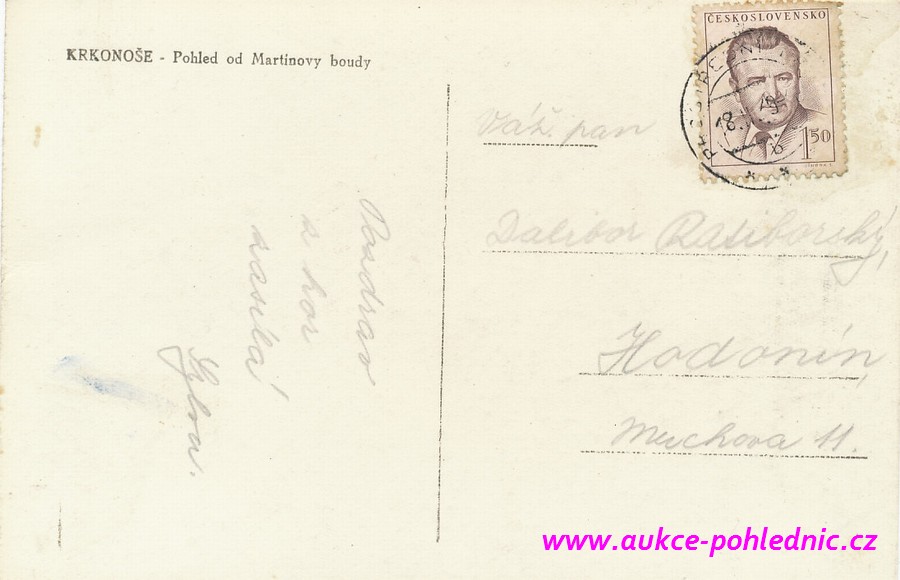 KRKONOŠE - Pohled od Martinovy boudy
ČESKOSLOVENSKO
1.50
Váž. pan
Dalibor Ratiborský,
Hodonín,
Muchova 11.
Pozdrav
z hor
zasílá
www.aukce-pohlednic.cz